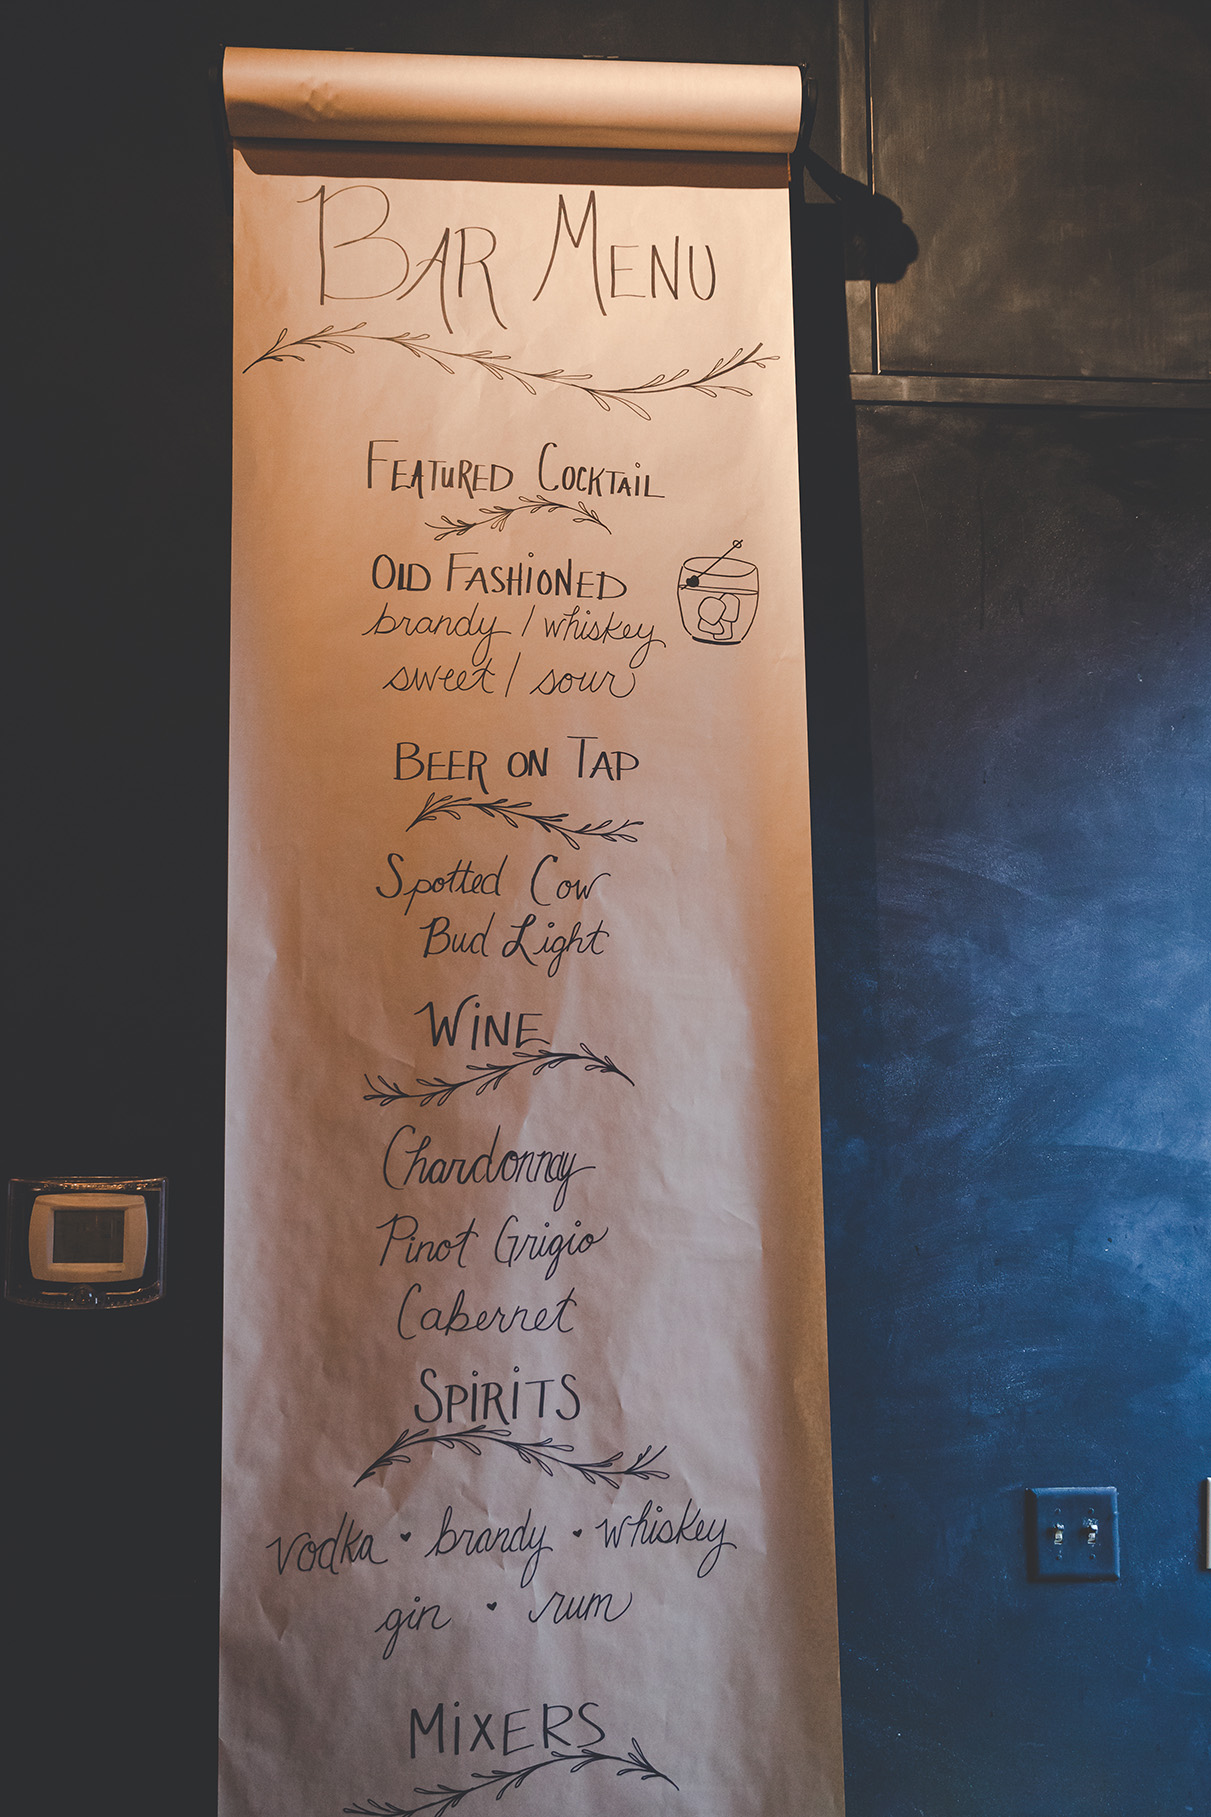 BAR MENU
FEATURED COCKTAIL
OLD FASHIONED
brandy / whiskey
sweet / sour
BEER ON TAP
Spotted Cow
Bud Light
WINE
Chardonnay
Pinot Grigio
Cabernet
SPIRITS
vodka • brandy • whiskey
gin • rum
MIXERS